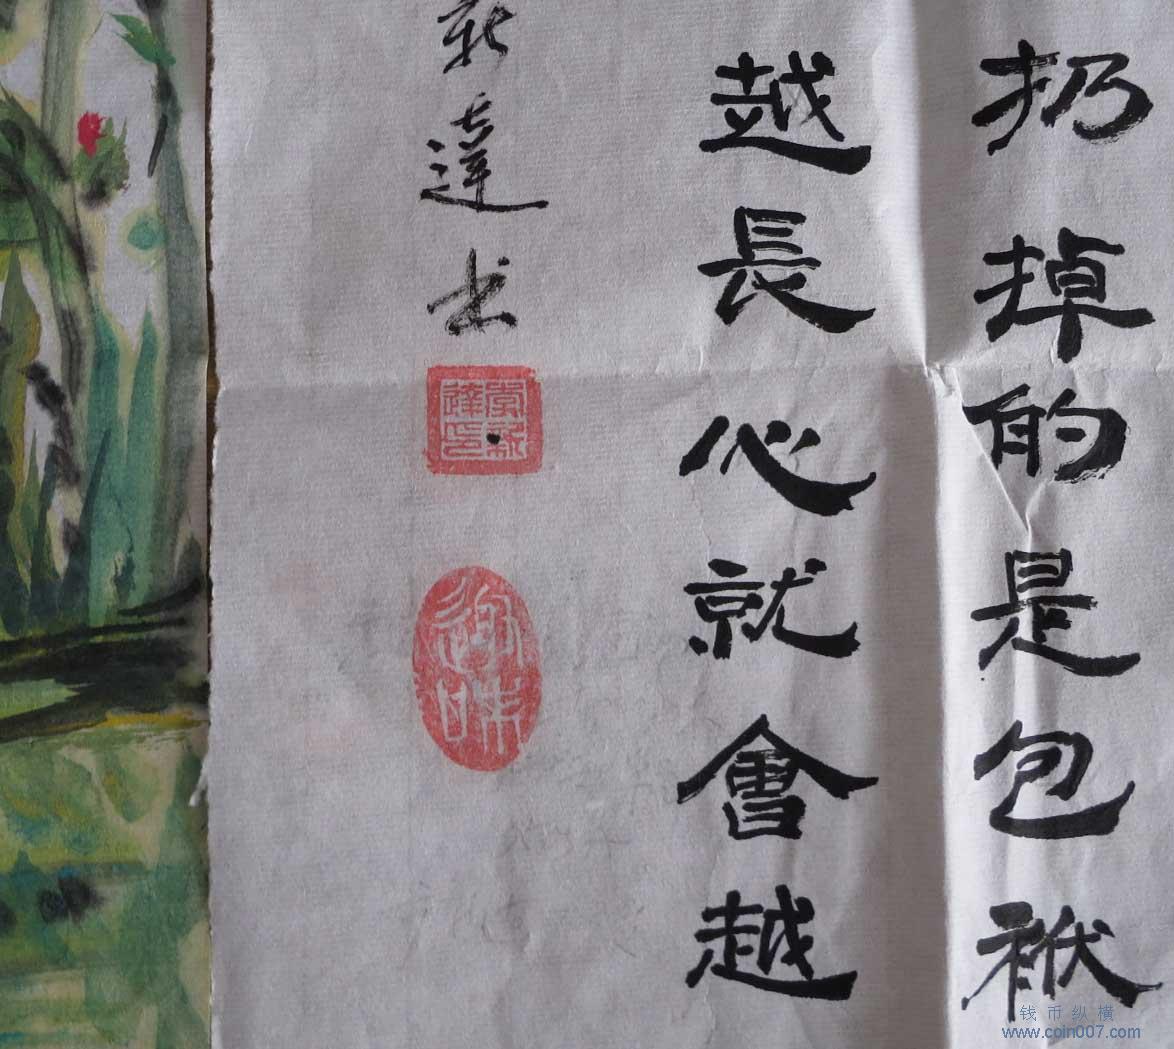 扔掉的是包袱
越長心就會越
新達書
钱币纵横
www.coin007.com